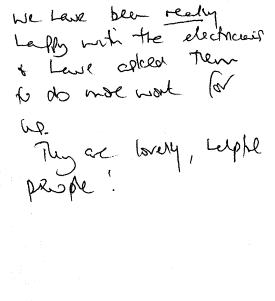 We have been really
happy with the electricians
& have asked them
to do more work for
us.
They are lovely, helpful
people!